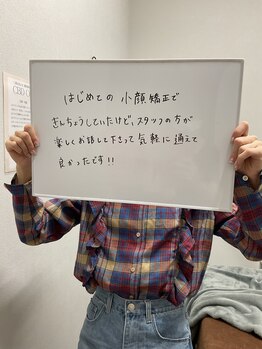 はじめての 小顔矯正で
きんちょうしていたけど、スタッフの方が
楽しくお話して下さって 気軽に 通えて
良かったです!!
CBD